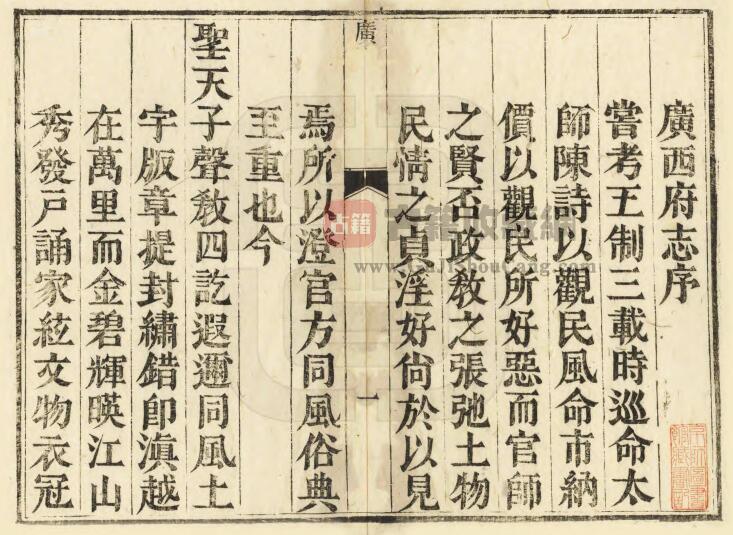 廣西府志序
嘗考王制三載時巡命太
師陳詩以觀民風命市納
價以觀民所好惡而官師
之賢否政教之張弛土物
民情之貞淫好尙於以見
廣
一
焉所以澄官方同風俗典
至重也今
聖天子聲教四訖遐邇同風土
宇版章提封繡錯卽滇越
在萬里而金碧輝暎江山
秀發戸誦家絃文物衣冠
古籍